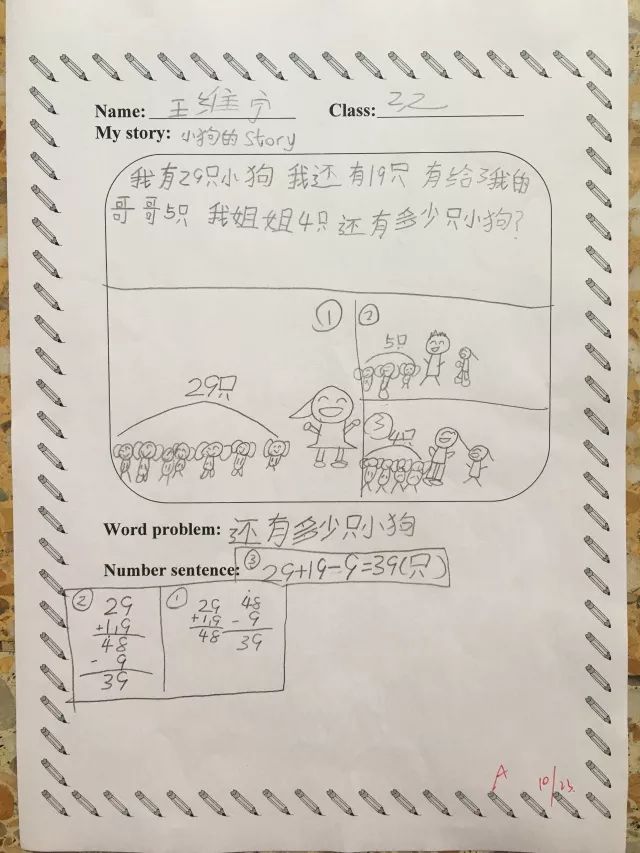 Name: 王维宁 Class: 32
My story: 小狗的 Story
我有29只小狗 我还有19只 有给了我的
哥哥5只 我姐姐4只还有多少只小狗?
①
29只
②
5只
③
4只
Word problem: 还有多少只小狗
Number sentence: ③ 29+19-9=39(只)
②
29
+19
48
- 9
39
①
29
+19
48
48
- 9
39
A 10/23